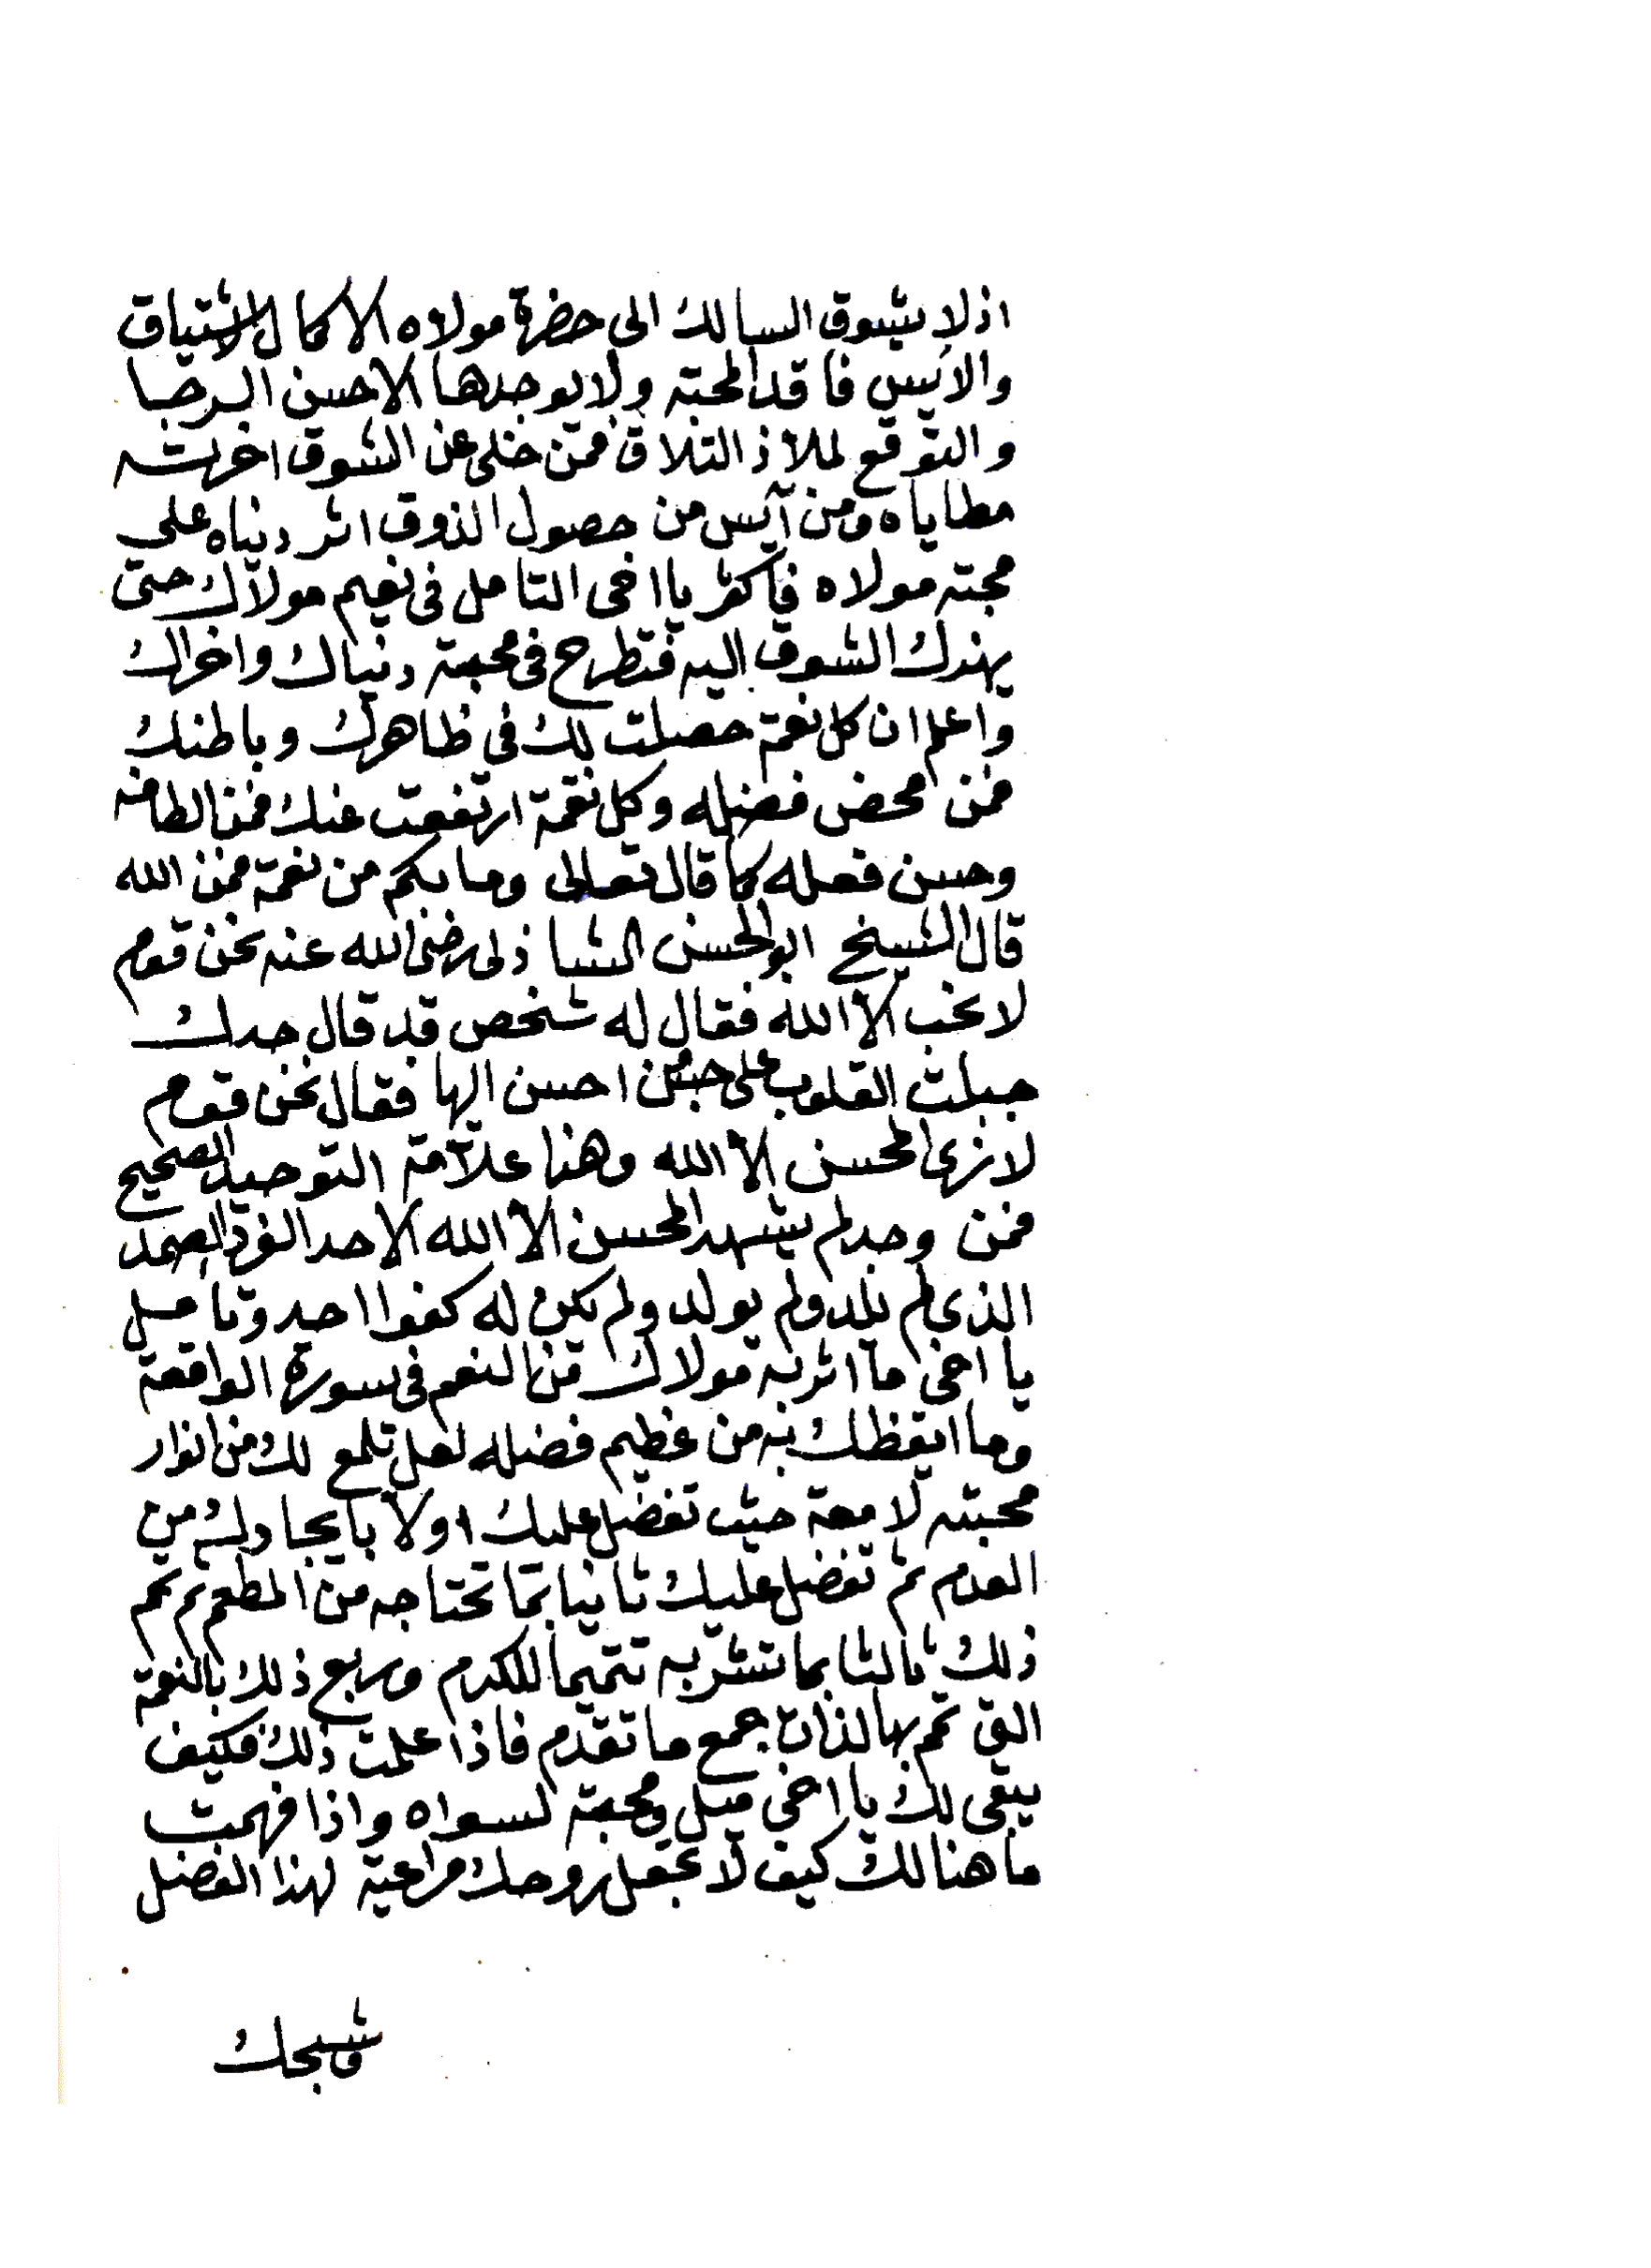 اذ لا يشوق السالك الى حضرة مولاه الا كمال الاشتياق
والايس فاقد المحبة ولا يوجدها الا حسن الرجا
والتوقع لملاذ التلاق فمن خلى عن الشوق اخرته
مطاياه ومن آيس من حصول الذوق اثر دنياه على
محبة مولاه فاكثر يا اخى التامل فى نعيم مولاك حتى
يهزك الشوق اليه فتطرح فى محبته دنياك واخراك
واعلم ان كل نعمة حصلت لك فى ظاهرك وباطنك
فمن محض فضله وكل نقمة ارتفعت عنك فمن الطافه
وحسن فعله كما قال تعالى وما بكم من نعمة فمن الله
قال الشيخ ابو الحسن الشاذلى رضى الله عنه نحن قوم
لا نحب الا الله فقال له شخص قد قال جدك
جبلت القلوب على حب من احسن اليها فقال نحن قوم
لا نرى المحسن الا الله وهذا علامة التوحيد الصحيح
فمن وحد لم يشهد المحسن الا الله الاحد الفرد الصمد
الذى لم يلد ولم يولد ولم يكن له كفوا احد وتامل
يا اخى ما اثر به مولاك من النعم فى سورة الواقعة
وما ايقظك به من عظيم فضله لعل تلمع لك من انوار
محبته لامعة حيث تفضل عليك اولا بايجادك من
العدم ثم تفضل عليك ثانيا بما تحتاجه من المطعم ثم تمم
ذلك ثالثا بما تشربه تتميما للكرم وربع ذلك بالنعمة
التى تم بها لذات جمع ما تقدم فاذا علمت ذلك فكيف
يبقى لك يا اخى ميل ومحبة لسواه واذا فهمت
ما هنالك كيف لا تجعل روحك مراعية لهذا الفضل